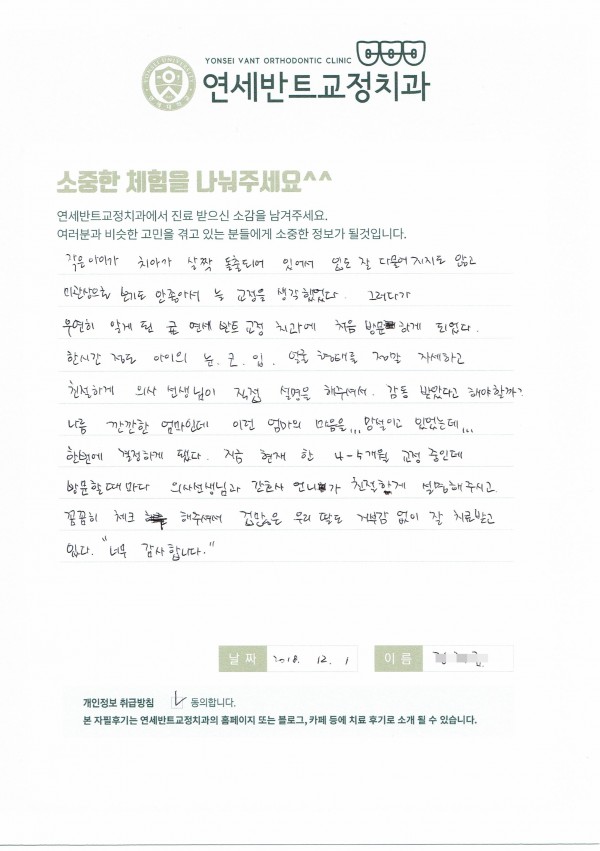 YONSEI VANT ORTHODONTIC CLINIC
연세반트교정치과
소중한 체험을 나눠주세요^^
연세반트교정치과에서 진료 받으신 소감을 남겨주세요.
여러분과 비슷한 고민을 겪고 있는 분들에게 소중한 정보가 될것입니다.
작은아이가 치아가 살짝 돌출되어 있어서 입도 잘 다물어지지도 않고
미관상으로 보기도 안좋아서 늘 교정을 생각했었다. 그러다가
우연히 알게 된 곳 연세 반트 교정 치과에 처음 방문하게 되었다.
한시간 정도 아이의 눈. 코. 입. 얼굴 형태를 정말 자세하고
친절하게 의사 선생님이 직접 설명을 해주셔서. 감동 받았다고 해야할까?
나름 깐깐한 엄마인데 이런 엄마의 마음을,,, 망설이고 있었는데,,,
한번에 결정하게 됐다. 지금 현재 한 4-5개월 교정 중인데
방문할때마다 의사선생님과 간호사 언니가 친절하게 설명해주시고
꼼꼼히 체크 해주셔서 겁많은 우리 딸도 거부감 없이 잘 치료받고
있다. "너무 감사합니다."
날짜 2018. 12. 1 이름
개인정보 취급방침 동의합니다.
본 자필후기는 연세반트교정치과의 홈페이지 또는 블로그, 카페 등에 치료 후기로 소개 될 수 있습니다.